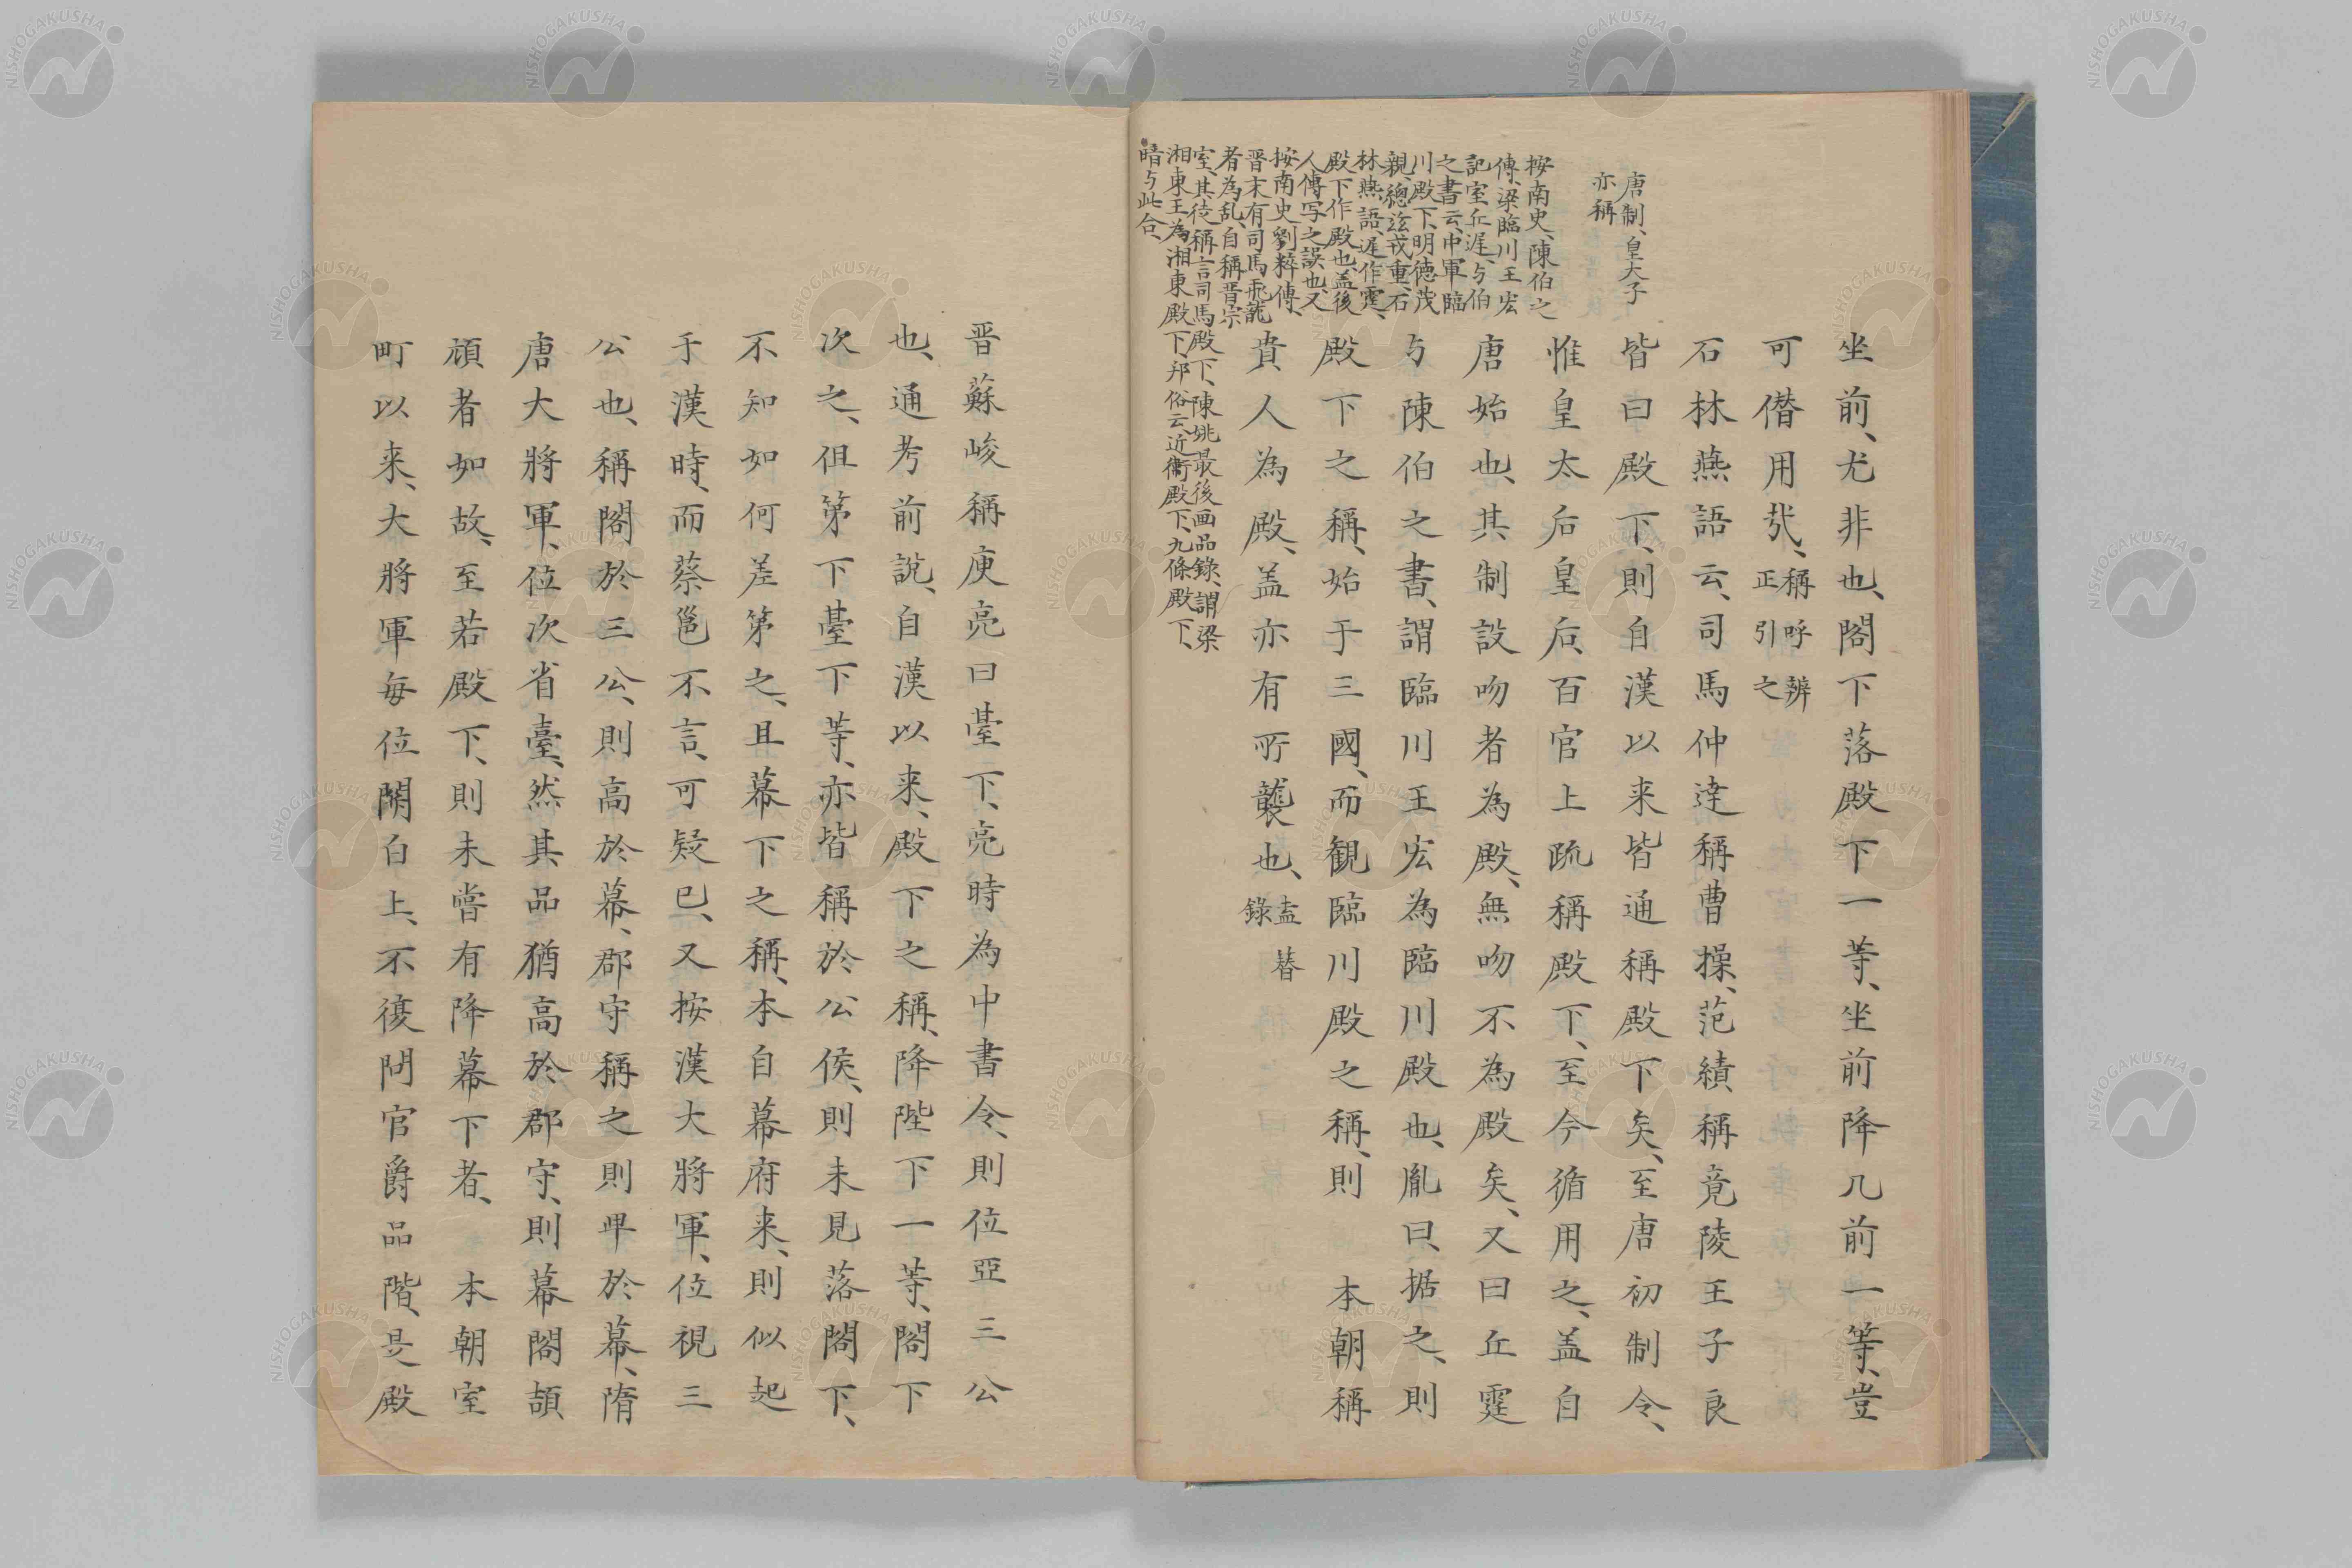 坐前、尤非也、閣下落殿下一等、坐前降几前一等、豈
可僭用哉、稱呼辨正引之
石林燕語云、司馬仲達稱曹操、范績稱竟陵王子良
皆曰殿下、則自漢以来皆通稱殿下矣、至唐初制令、
惟皇太后皇后、百官上疏稱殿下、至今循用之、盖自
唐始也、其制設吻者為殿、無吻不為殿矣、又曰丘霆
与陳伯之書、謂臨川王宏為臨川殿也、胤曰、据之、則
殿下之稱、始于三國、而観臨川殿之稱、則 本朝稱
貴人為殿、盖亦有所襲也、盍簪錄
唐制、皇太子
亦稱
按南史、陳伯之
傳、梁臨川王宏
記室丘遟、与伯
之書云、中軍臨
川殿下、明徳茂
親、總茲戎重、石
林燕語、遟作霆、
殿下作殿也、盖後
人傳写之誤也、又
按南史劉粹傳、
晋末有司馬飛龍
者為乱、自稱晋宗
室、其徒稱言司馬殿下、陳姚最後画品錄、謂梁
湘東王為湘東殿下、邦俗云、近衛殿下、九條殿下、
暗与此合、
晋蘇峻稱庾亮曰臺下、亮時為中書令、則位亞三公
也、通考前說、自漢以来、殿下之稱、降陛下一等、閣下
次之、但第下臺下等、亦皆稱於公侯、則未見落閣下、
不知如何差第之、且幕下之稱、本自幕府来、則似起
于漢時、而蔡邕不言、可疑已、又按漢大將軍、位視三
公也、稱閣於三公、則高於幕、郡守稱之則卑於幕、隋
唐大將軍、位次省臺、然其品猶高於郡守、則幕閣頡
頏者如故、至若殿下、則未嘗有降幕下者、 本朝室
町以来、大將軍每位関白上、不復問官爵品階、是殿